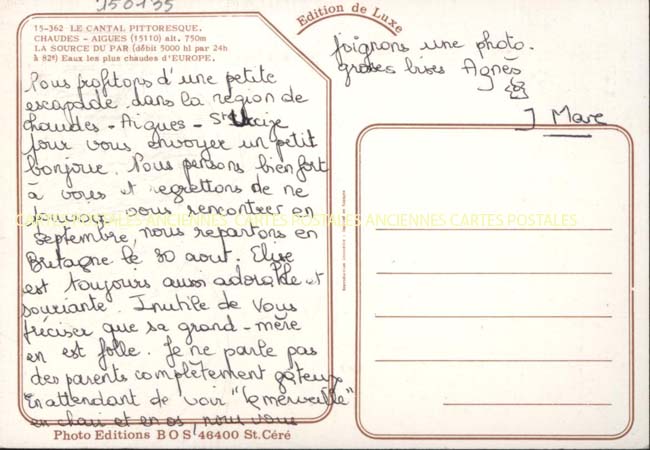 150135
15-362 LE CANTAL PITTORESQUE.
CHAUDES - AIGUES (15110) alt. 750m
LA SOURCE DU PAR (débit 5000 hl par 24h
à 82°) Eaux les plus chaudes d'EUROPE.
Nous profitons d'une petite
escapade dans la région de
chaudes - Aigues - St
pour vous envoyer un petit
bonjour. Nous pensons bien fort
à vous et regrettons de ne
pouvoir vous rencontrer en
septembre, nous repartons en
Bretagne le 30 aout. Elise
est toujours aussi adorable et
souriante. Inutile de vous
préciser que sa grand-mère
en est folle. Je ne parle pas
des parents complètement gâteux
En attendant de voir "la merveille"
en chair et en os, nous vous
Photo Editions BOS 46400 St. Céré
Edition de Luxe
joignons une photo.
grosses bises Agnès
J Marc
CARTES POSTALES ANCIENNES CARTES POSTALES ANCIENNES CARTES POSTALES